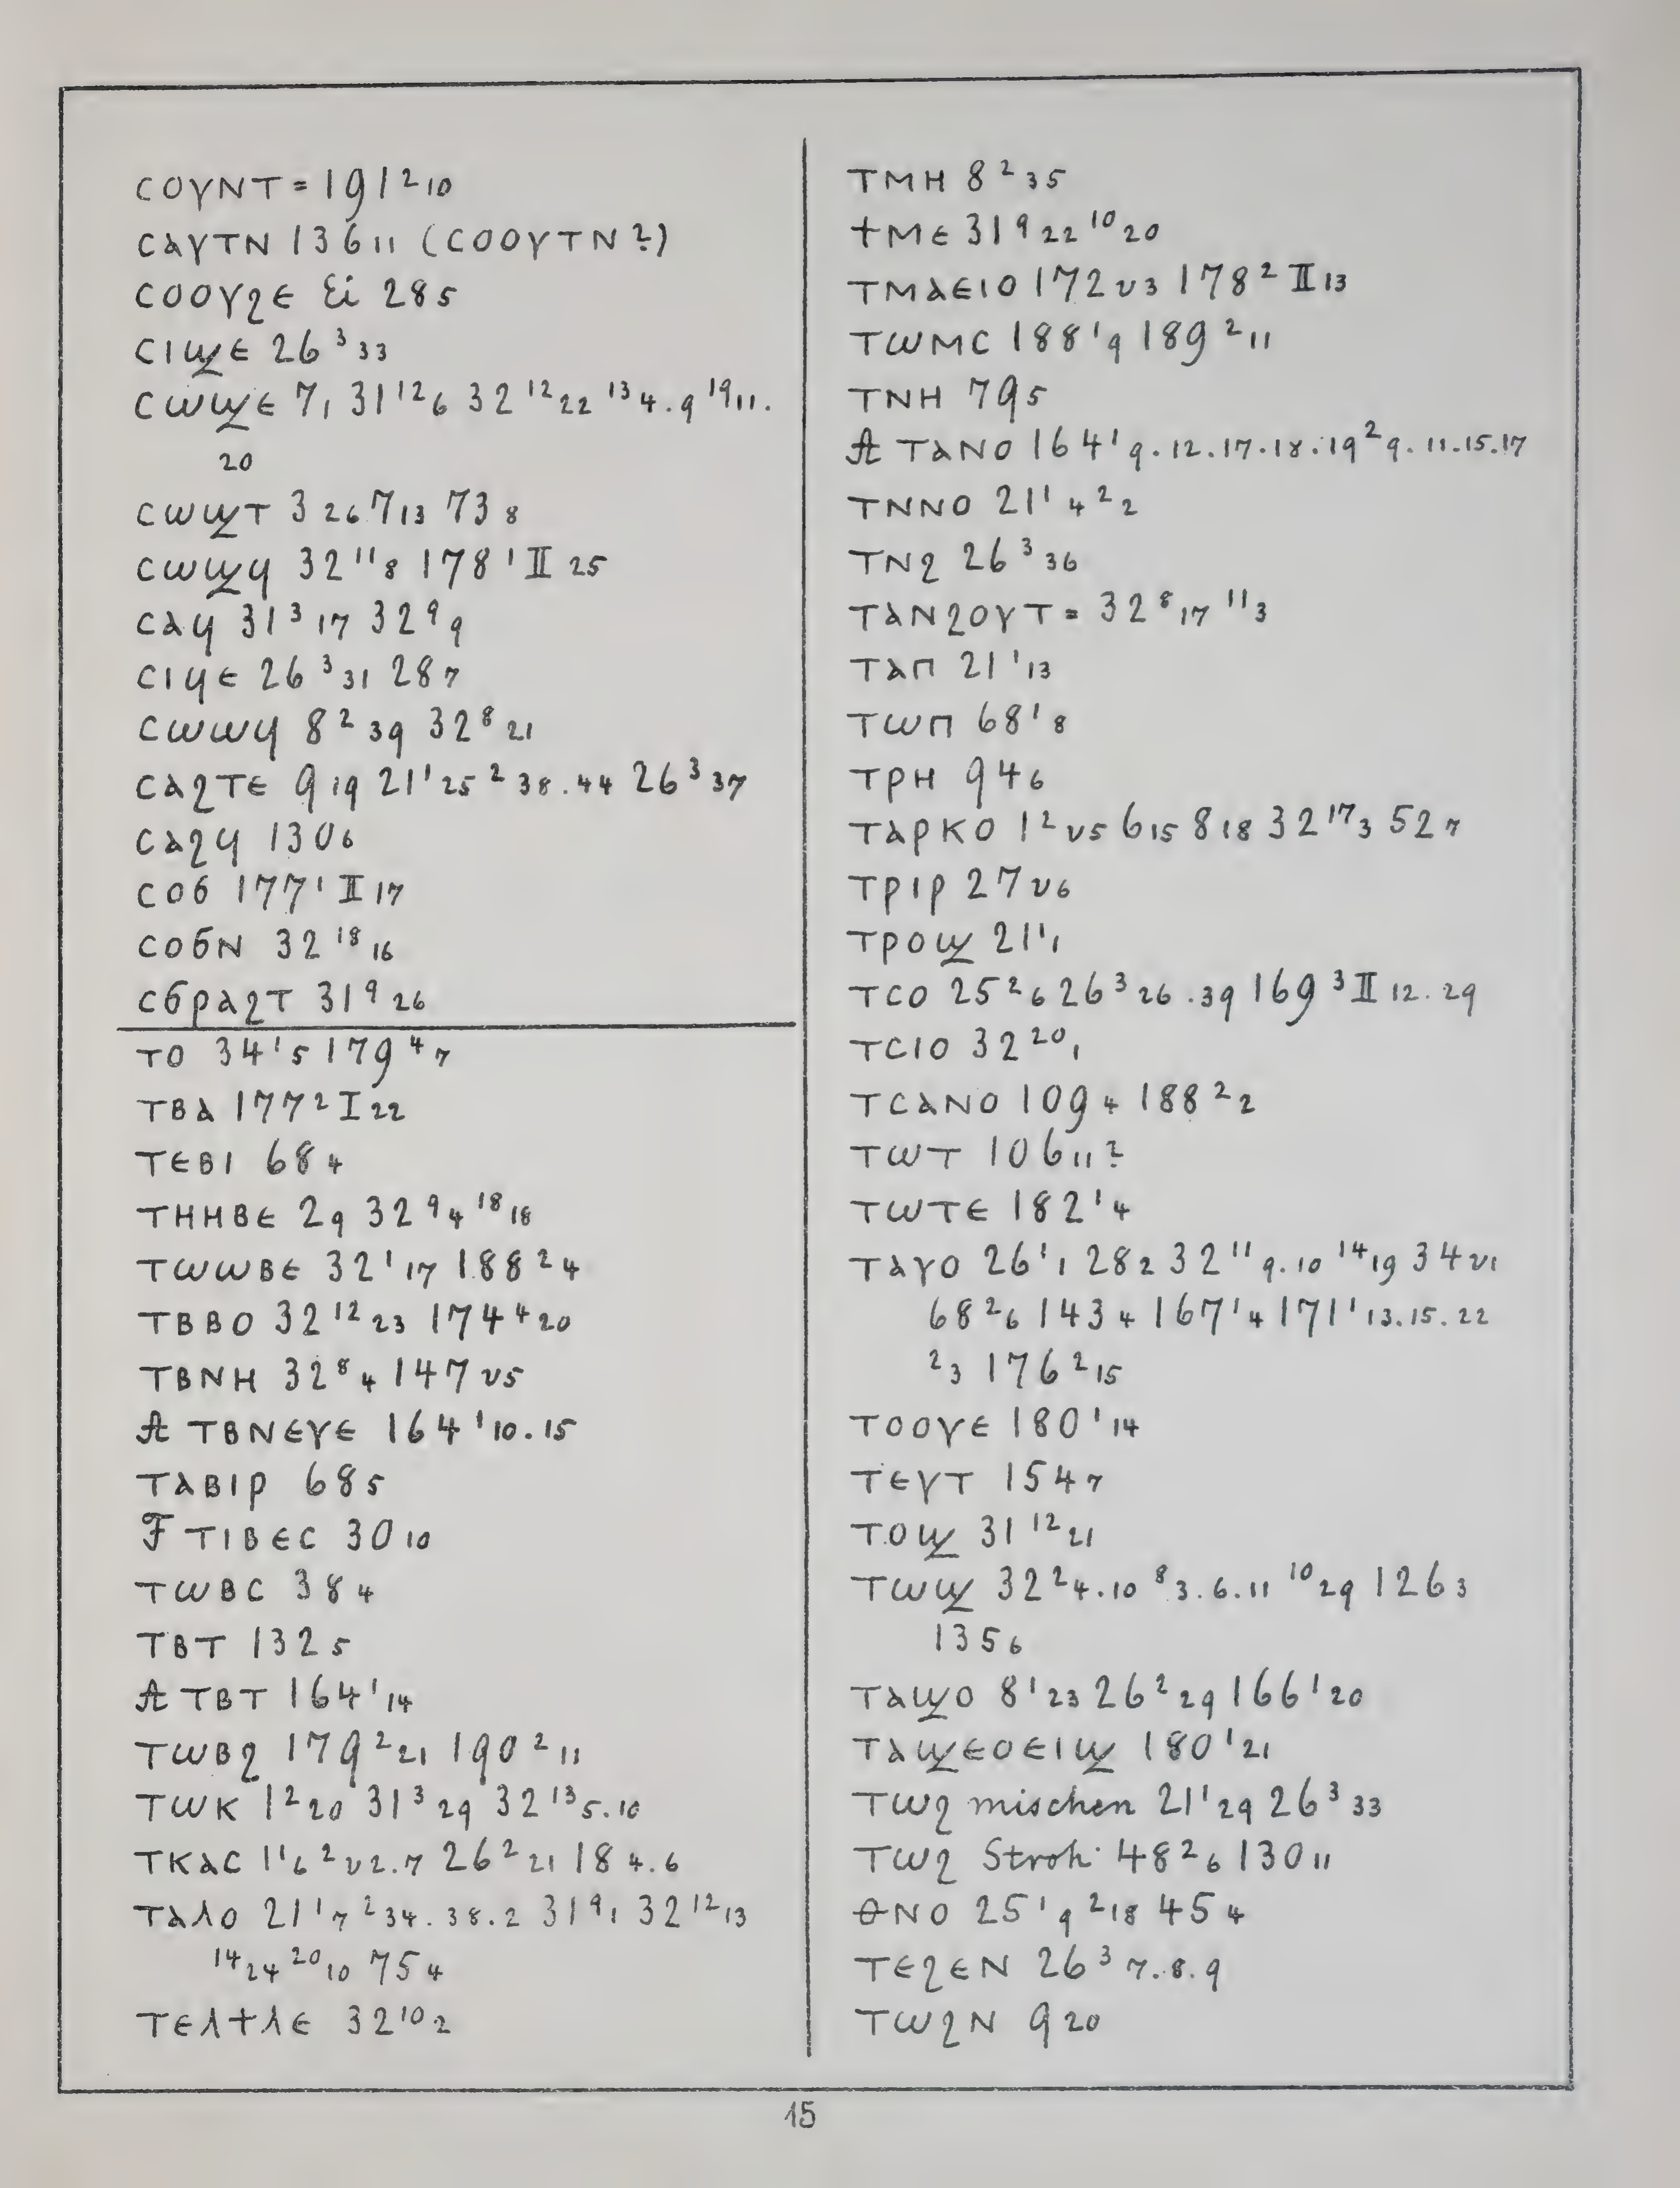 ⲥⲟⲩⲛⲧ= 191²₁₀
ⲥⲁⲩⲧⲛ 136₁₁ (ⲥⲟⲟⲩⲧⲛ?)
ⲥⲟⲟⲩϩⲉ Ei 28₅
ⲥⲓϣⲉ 26³₃₃
ⲥⲱϣⲉ 7₁ 31¹²₆ 32¹²₂₂ ¹³₄.₉ ¹⁹₁₁.
₂₀
ⲥⲱϣⲧ 3₂₆ 7₁₃ 73₈
ⲥⲱϣϥ 32¹¹₈ 178¹ II ₂₅
ⲥⲁϥ 31³₁₇ 32⁹₉
ⲥⲓϥⲉ 26³₃₁ 28₇
ⲥⲱⲱϥ 8²₃₉ 32⁸₂₁
ⲥⲁϩⲧⲉ 9₁₉ 21¹₂₅ ²₃₈.₄₄ 26³₃₇
ⲥⲁϩϥ 130₆
ⲥⲟϭ 177¹ II ₁₇
ⲥⲟϭⲛ 32¹⁸₁₆
ⲥϭⲣⲁϩⲧ 31⁹₂₆
ⲧⲟ 34¹₅ 179⁴₇
ⲧⲃⲁ 177² I ₂₂
ⲧⲉⲃⲓ 68₄
ⲧⲏⲏⲃⲉ 2₉ 32⁹₄ ¹⁸₁₈
ⲧⲱⲱⲃⲉ 32¹₁₇ 188²₄
ⲧⲃⲃⲟ 32¹²₂₃ 174⁴₂₀
ⲧⲃⲛⲏ 32⁸₄ 147 v₅
A ⲧⲃⲛⲉⲩⲉ 164¹₁₀.₁₅
ⲧⲁⲃⲓⲣ 68₅
F ⲧⲓⲃⲉⲥ 30₁₀
ⲧⲱⲃⲥ 38₄
ⲧⲃⲧ 132₅
A ⲧⲃⲧ 164¹₁₄
ⲧⲱⲃϩ 179²₂₁ 190²₁₁
ⲧⲱⲕ 1²₂₀ 31³₂₉ 32¹³₅.₁₀
ⲧⲕⲁⲥ 1¹₆ ² v₂.₇ 26²₂₁ 18₄.₆
ⲧⲁⲗⲟ 21¹₇ ²₃₄.₃₈.₂ 31⁹₁ 32¹²₁₃
¹⁴₂₄ ²⁰₁₀ 75₄
ⲧⲉⲗϯⲗⲉ 32¹⁰₂
ⲧⲙⲏ 8²₃₅
ϯⲙⲉ 31⁹₂₂ ¹⁰₂₀
ⲧⲙⲁⲉⲓⲟ 172 v₃ 178² II ₁₃
ⲧⲱⲙⲥ 188¹₉ 189²₁₁
ⲧⲛⲏ 79₅
A ⲧⲁⲛⲟ 164¹₉.₁₂.₁₇.₁₈.₁₉ ²₉.₁₁.₁₅.₁₇
ⲧⲛⲛⲟ 21¹₄ ²₂
ⲧⲛϩ 26³₃₆
ⲧⲁⲛϩⲟⲩⲧ= 32⁸₁₇ ¹¹₃
ⲧⲁⲡ 21¹₁₃
ⲧⲱⲡ 68¹₈
ⲧⲣⲏ 94₆
ⲧⲁⲣⲕⲟ 1² v₅ 6₁₅ 8₁₈ 32¹⁷₃ 52₇
ⲧⲣⲓⲣ 27 v₆
ⲧⲣⲟϣ 21¹₁
ⲧⲥⲟ 25²₆ 26³₂₆.₃₉ 169³ II ₁₂.₂₉
ⲧⲥⲓⲟ 32²⁰₁
ⲧⲥⲁⲛⲟ 109₄ 188²₂
ⲧⲱⲧ 106₁₁?
ⲧⲱⲧⲉ 182¹₄
ⲧⲁⲩⲟ 26¹₁ 28₂ 32¹¹₉.₁₀ ¹⁴₁₉ 34 v₁
68²₆ 143₄ 167¹₄ 171¹₁₃.₁₅.₂₂
²₃ 176²₁₅
ⲧⲟⲟⲩⲉ 180¹₁₄
ⲧⲉⲩⲧ 154₇
ⲧⲟϣ 31¹²₂₁
ⲧⲱϣ 32²₄.₁₀ ⁸₃.₆.₁₁ ¹⁰₂₉ 126₃
135₆
ⲧⲁϣⲟ 8¹₂₃ 26²₂₉ 166¹₂₀
ⲧⲁϣⲉⲟⲉⲓϣ 180¹₂₁
ⲧⲱϩ mischen 21¹₂₉ 26³₃₃
ⲧⲱϩ Stroh 48²₆ 130₁₁
ⲑⲛⲟ 25¹₉ ²₁₈ 45₄
ⲧⲉϩⲉⲛ 26³₇.₈.₉
ⲧⲱϩⲛ 9₂₀
15